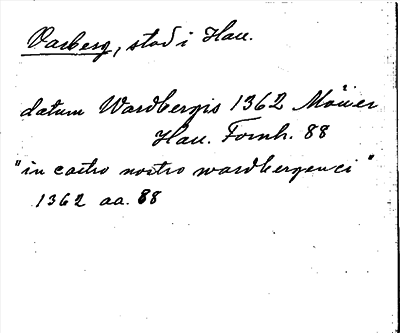 Varberg, stad i Hall.
datum Wardbergis 1362 Möwer
Hall. Fornh. 88
"in castro nostro wardbergenci"
1362 aa. 88